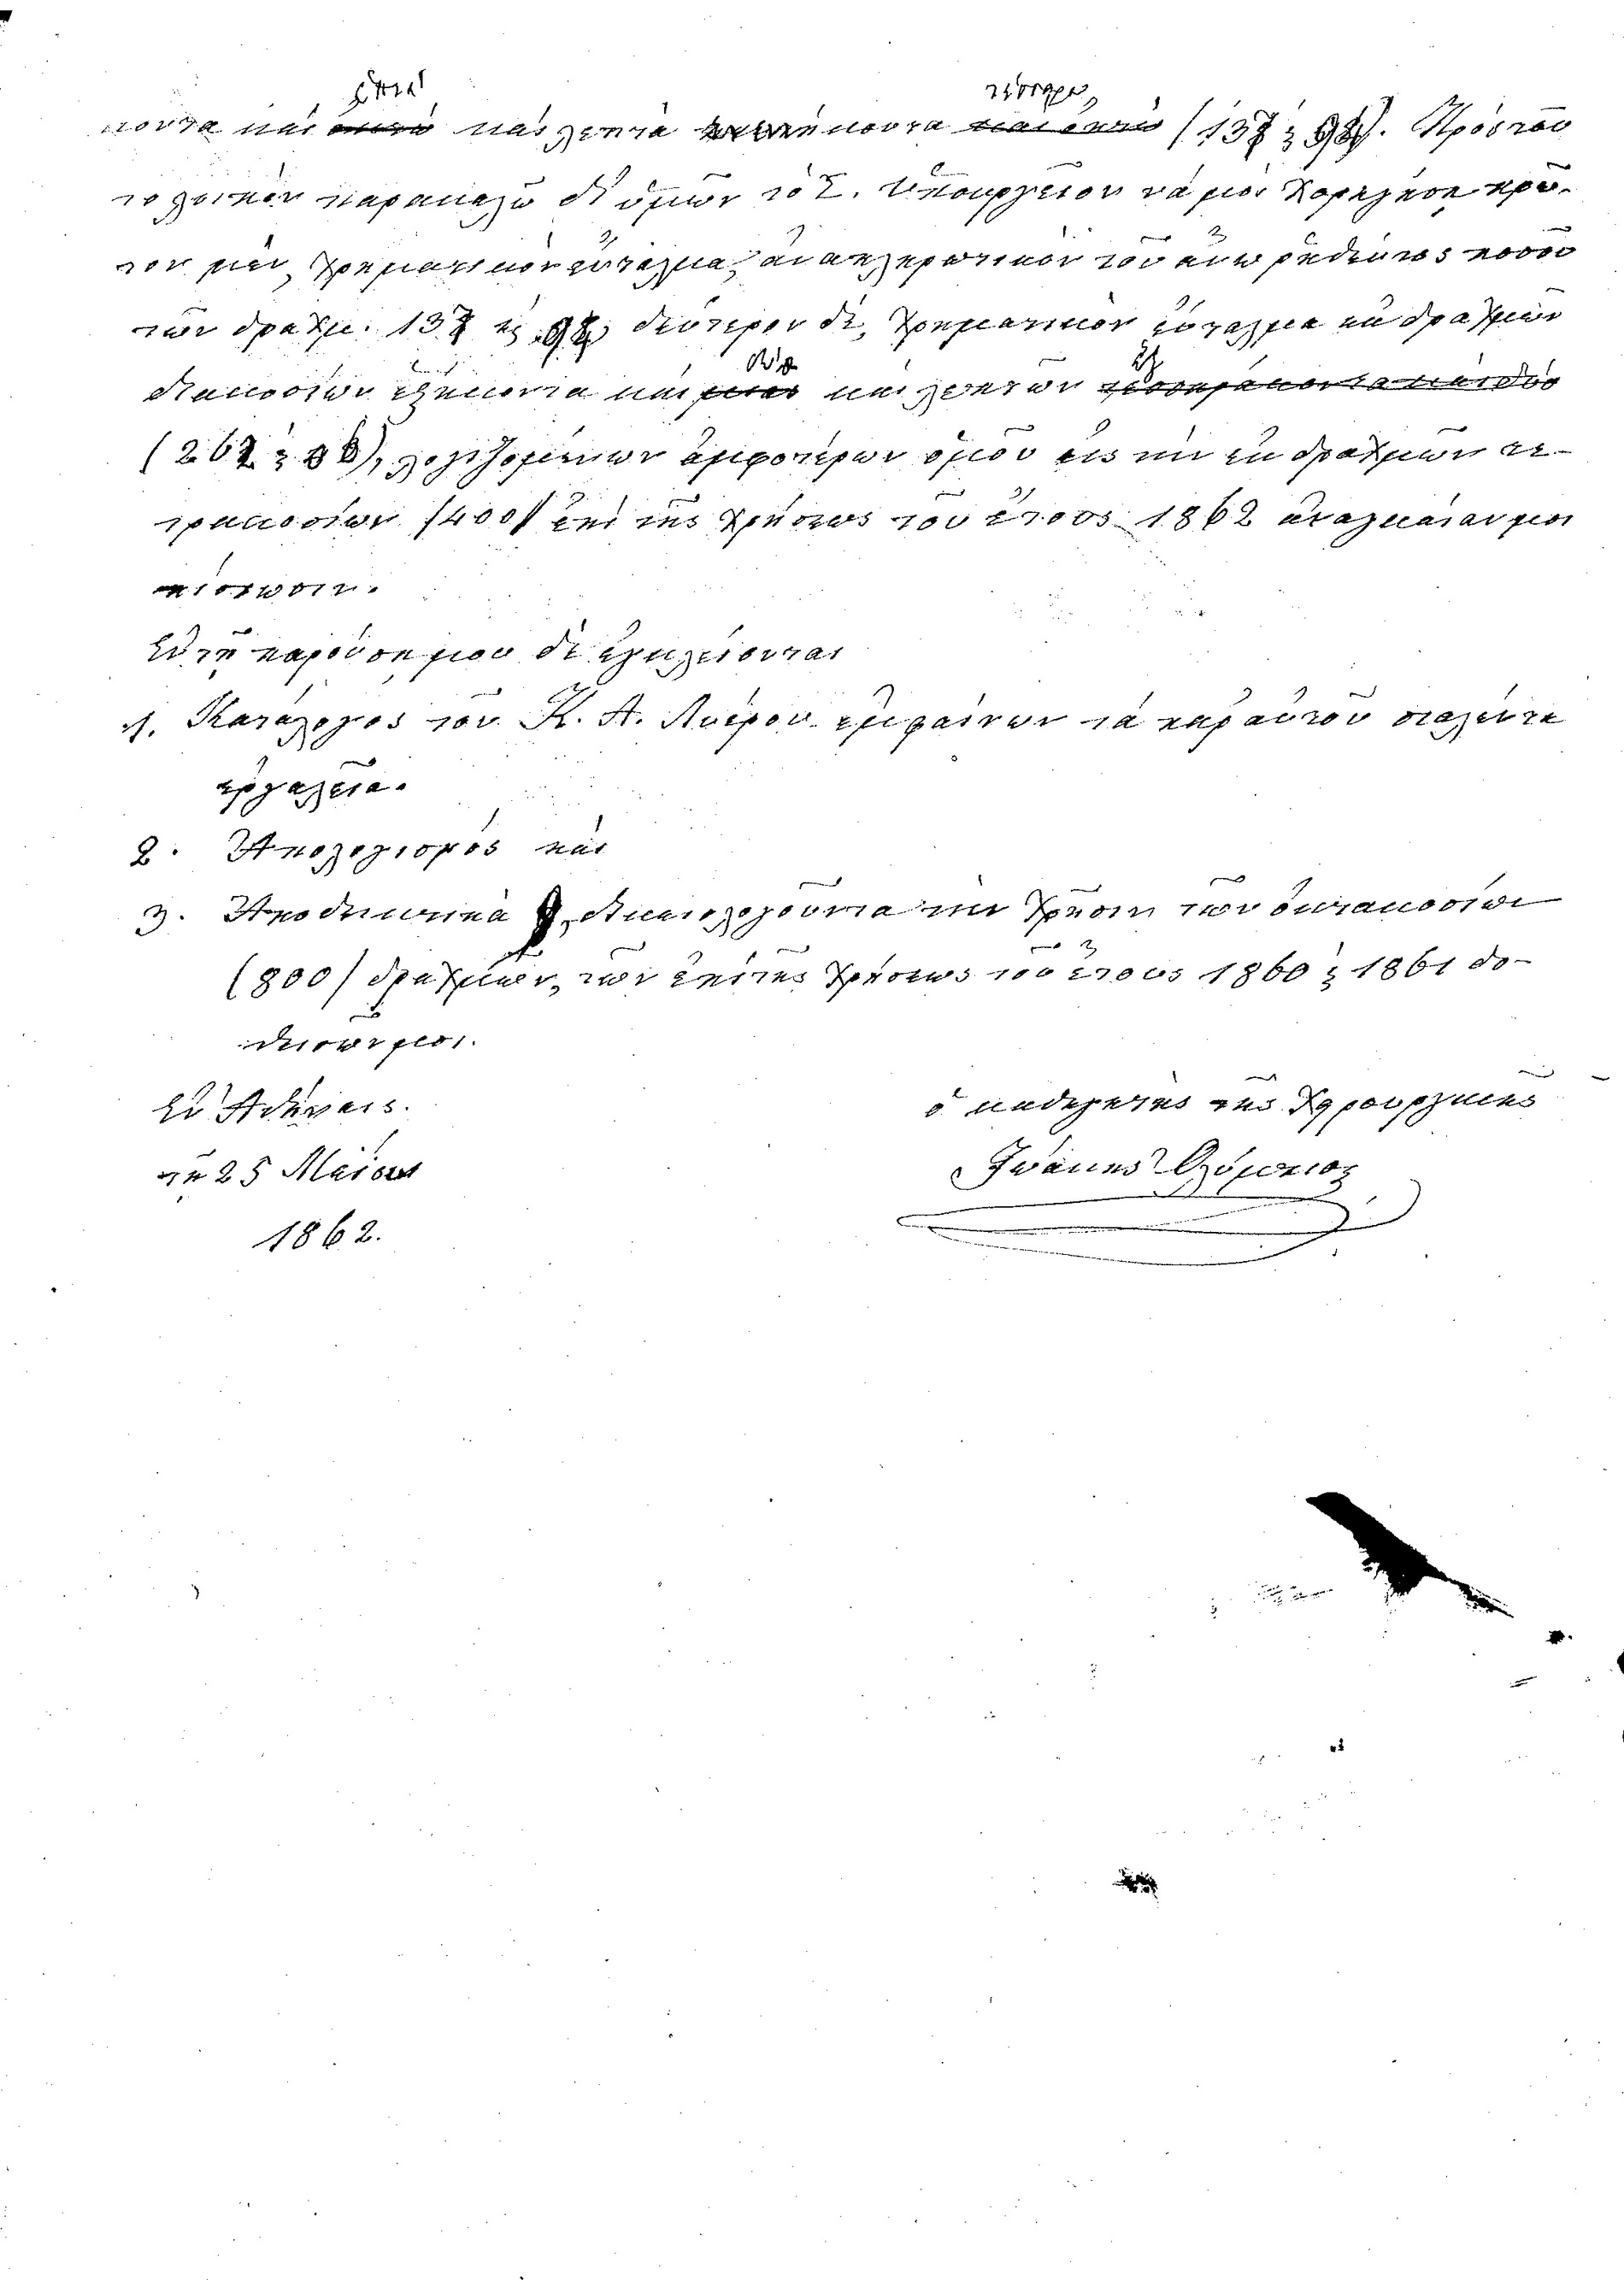 ἑπτὰ τέσσαρα
κοντα καὶ ὀκτὼ καὶ λεπτὰ ἐννενήκοντα καὶ ὀκτὼ (137 98). Πρὸς τοῦ
τὸ λοιπὸν παρακαλῶ δι' ὑμῶν τὸ Σ. Ὑπουργεῖον νὰ μοι χορηγήσῃ πρῶ-
τον μὲν χρηματικὸν ἔνταλμα, ἀναπληρωτικὸν τοῦ ἄνω ῥηθέντος ποσοῦ
τῶν δραχμ. 137 98, δεύτερον δὲ, χρηματικὸν ἔνταλμα ἐκ δραχμῶν
διακοσίων ἑξήκοντα καὶ μιᾶς καὶ λεπτῶν τεσσαράκοντα καὶ δύο
(262), λογιζομένων ἀμφοτέρων ὁμοῦ εἰς τὴν ἐκ δραχμῶν τε-
τρακοσίων (400) ἐπὶ τῆς χρήσεως τοῦ ἔτους 1862 ἀναλογοῦσαν μοι
πίστωσιν.
Ἐν τῇ παρούσῃ μου δὲ ἐγκλείονται
1. Κατάλογος τοῦ Κ. Α. ἐμφαίνων τὰ παρ' αὐτοῦ σταλέντα
ἐργαλεῖα.
2. Ἀπολογισμὸς καὶ
3. Ἀποδεικτικὰ δικαιολογοῦντα τὴν χρῆσιν τῶν ὀκτακοσίων
(800) δραχμῶν, τῶν ἐπὶ τῆς χρήσεως τοῦ ἔτους 1860 1861 δο-
θεισῶν μοι.
Ἐν Ἀθήναις.
τῇ 25 Μαΐου
1862.
ὁ καθηγητὴς τῆς Χειρουργικῆς
Ἰωάννης Ὀλύμπιος